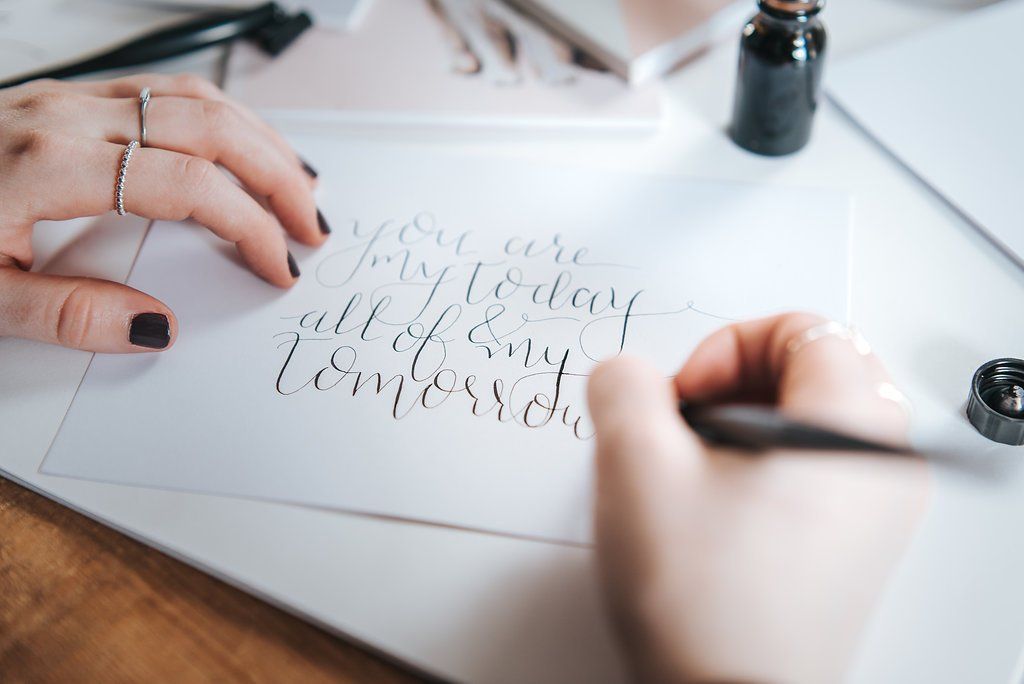 you are
my today
all of & my
tomorrow